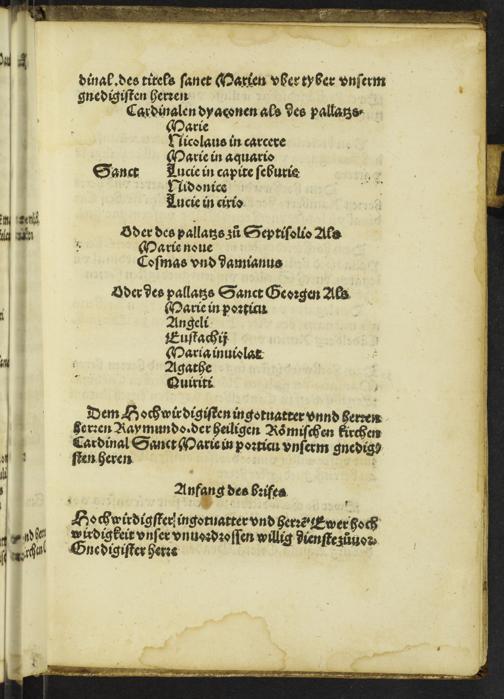 dinal. des titels sanct Marien vber tyber vnserm
gnedigisten herren
Cardinalen dyaconen als des pallatzs
Marie
Nicolaus in carcere
Marie in aquario
Sanct Lucie in capite seburie
Nidonice
Lucie in cirio
Oder des pallatzs zů Septisolio Als
Marie noue
Cosmas vnd damianus
Oder des pallatzs Sanct Georgen Als
Marie in porticu
Angeli
Eustachij
Maria inuiolat
Agathe
Quiriti
Dem Hochwirdigisten in gotuatter vnnd herren
herren Raymundo. der heiligen Römischen kirchen
Cardinal Sanct Marie in porticu vnserm gnedig-
sten heren
Anfang des brifes
Hochwirdigster in gotuatter vnd herrē Ewer hoch
wirdigkeit vnser vnuordrossen willig dienste zůuor
Gnedigister herre